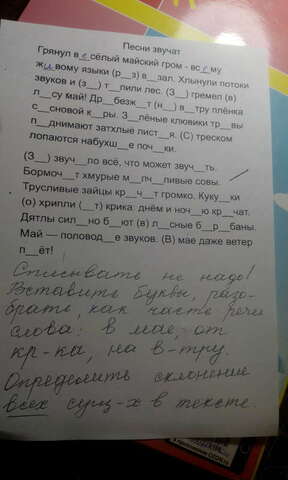 Песни звучат
Грянул в е сёлый майский гром - вс е му
ж и вому языки (р__з) в__зал. Хлынули потоки
звуков и (з__) т__пили лес. (З__) гремел (в)
л__су май! Др__безж__т (н__) в__тру плёнка
с__сновой к__ры. З__лёные клювики тр__вы
п__днимают затхлые лист__я. (С) треском
лопаются набухш__е поч__ки.
(З__) звуч__ло всё, что может звуч__ть.
Бормоч__т хмурые м__лч__ливые совы.
Трусливые зайцы кр__ч__т громко. Куку__ки
(о) хрипли (__т) крика: днём и ноч__ю кр__чат.
Дятлы сил__но б__ют (в) л__сные б__р__баны.
Май — половод__е звуков. (В) мае даже ветер
п__ёт!
Списывать не надо!
Вставить буквы, разо-
брать, как часть речи
слова: в мае, от
кр-ка, на в-тру.
Определить склонение
всех сущ-х в тексте.